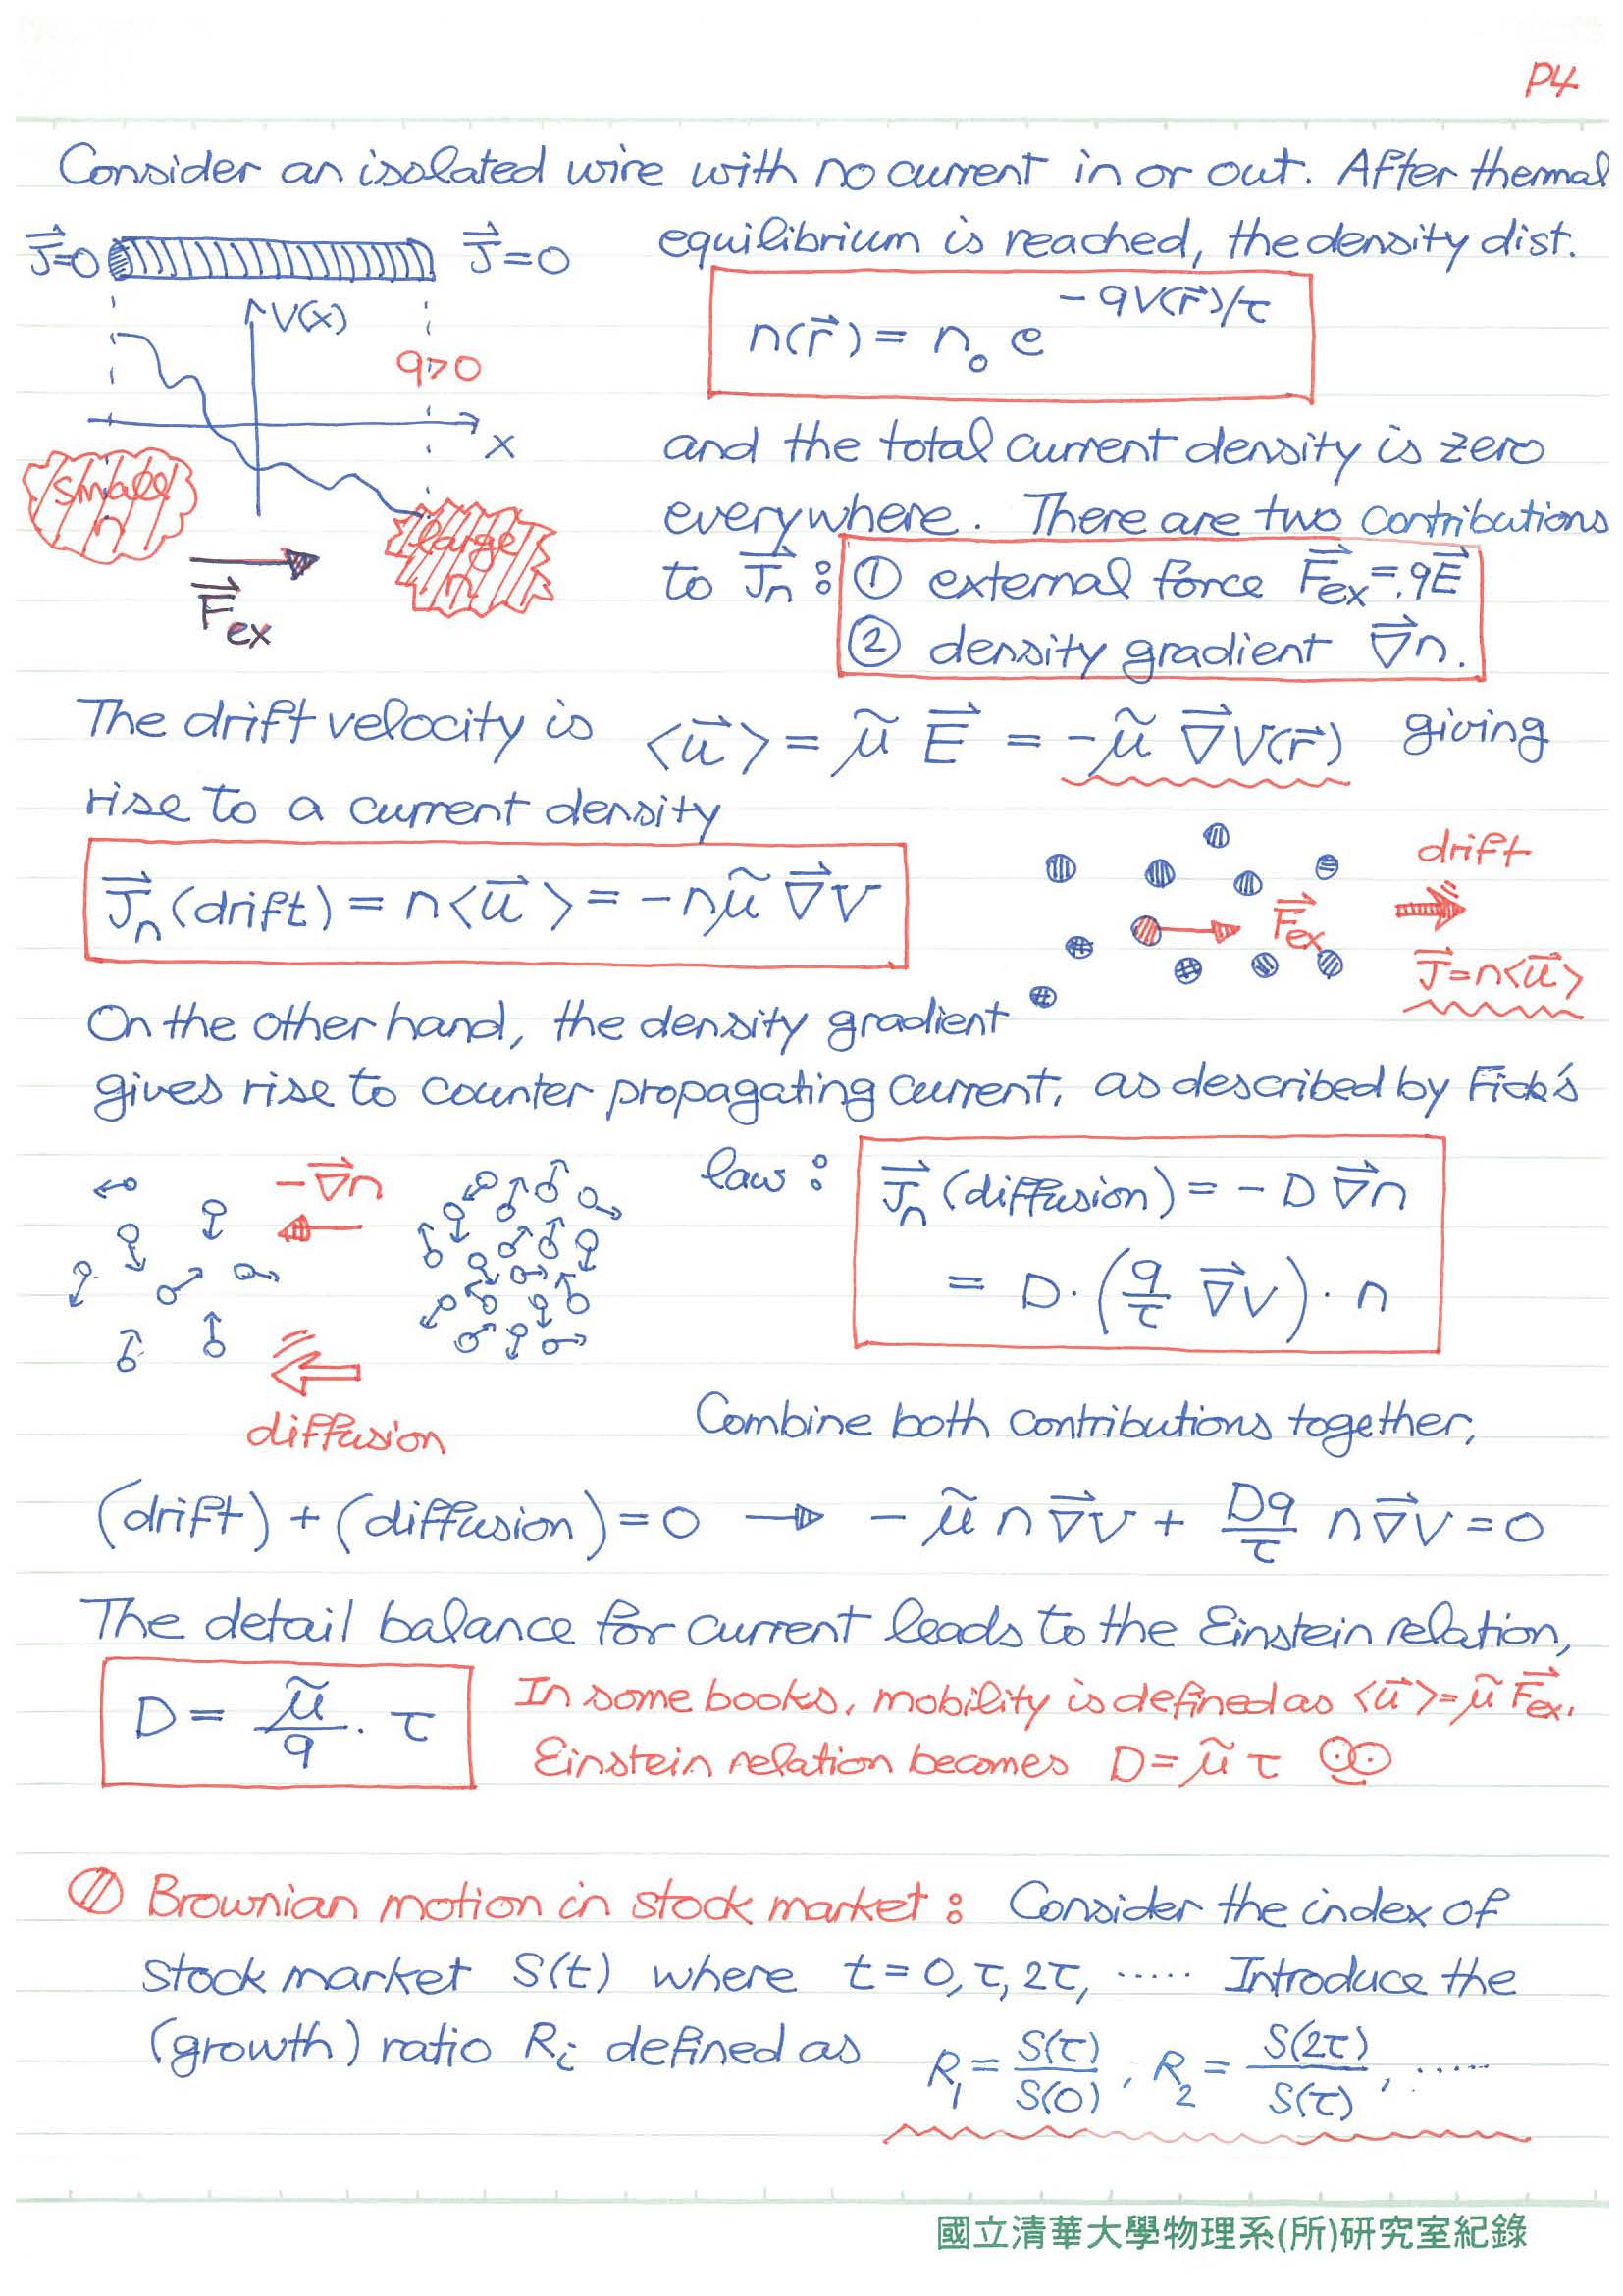 P4
Consider an isolated wire with no current in or out. After thermal
J⃗=0 J⃗=0 equilibrium is reached, the density dist.
V(x) n(r⃗) = n₀ e^{-qV(r⃗)/τ}
q>0
x and the total current density is zero
small n everywhere. There are two contributions
large n to J⃗n : ① external force F⃗ex = qE⃗
F⃗ex ② density gradient ∇⃗n.
The drift velocity is <u⃗> = μ̃ E⃗ = -μ̃ ∇⃗V(r⃗) giving
rise to a current density
J⃗n (drift) = n<u⃗> = -nμ̃ ∇⃗V
drift
F⃗ex
J⃗=n<u⃗>
On the other hand, the density gradient
gives rise to counter propagating current, as described by Fick's
-∇⃗n law : J⃗n (diffusion) = -D ∇⃗n
= D·(q/τ ∇⃗V)·n
diffusion
Combine both contributions together,
(drift) + (diffusion) = 0 → -μ̃ n∇⃗V + Dq/τ n∇⃗V = 0
The detail balance for current leads to the Einstein relation,
D = μ̃/q · τ In some books, mobility is defined as <u⃗>=μ̃ F⃗ex.
Einstein relation becomes D=μ̃ τ
Brownian motion in stock market : Consider the index of
stock market S(t) where t=0, τ, 2τ, ..... Introduce the
(growth) ratio Ri defined as R₁ = S(τ)/S(0) , R₂ = S(2τ)/S(τ) , .....
國立清華大學物理系(所)研究室紀錄